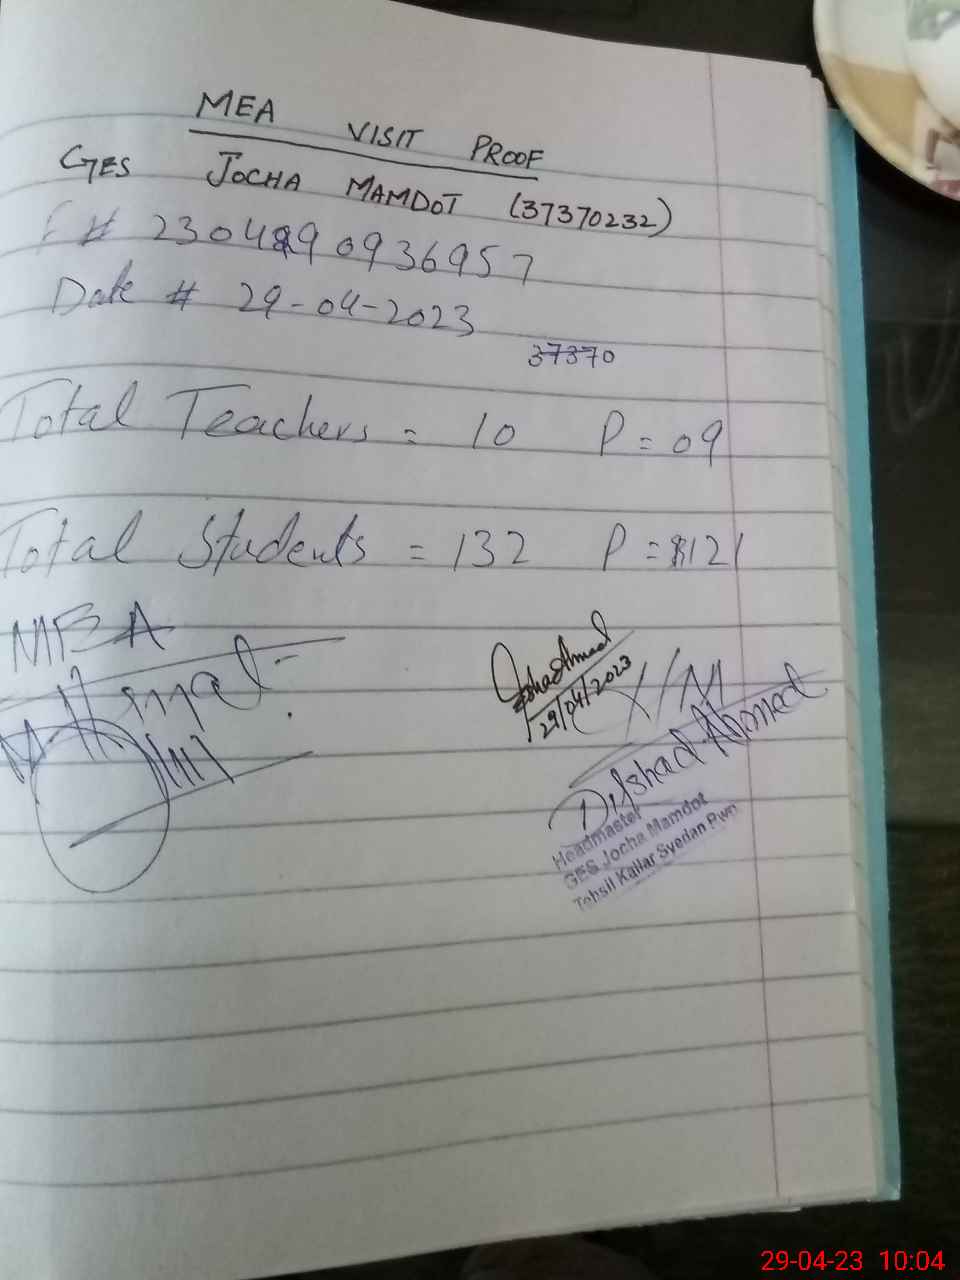 MEA VISIT PROOF
GES JOCHA MAMDOT (37370232)
# 2304290936957
Date # 29-04-2023
37370
Total Teachers = 10 P = 09
Total Students = 132 P = 121
MEA
29/04/2023
Dilshad Ahmed
Headmaster
GES Jocha Mamdot
Tehsil Kallar Syedan Rwp
29-04-23 10:04